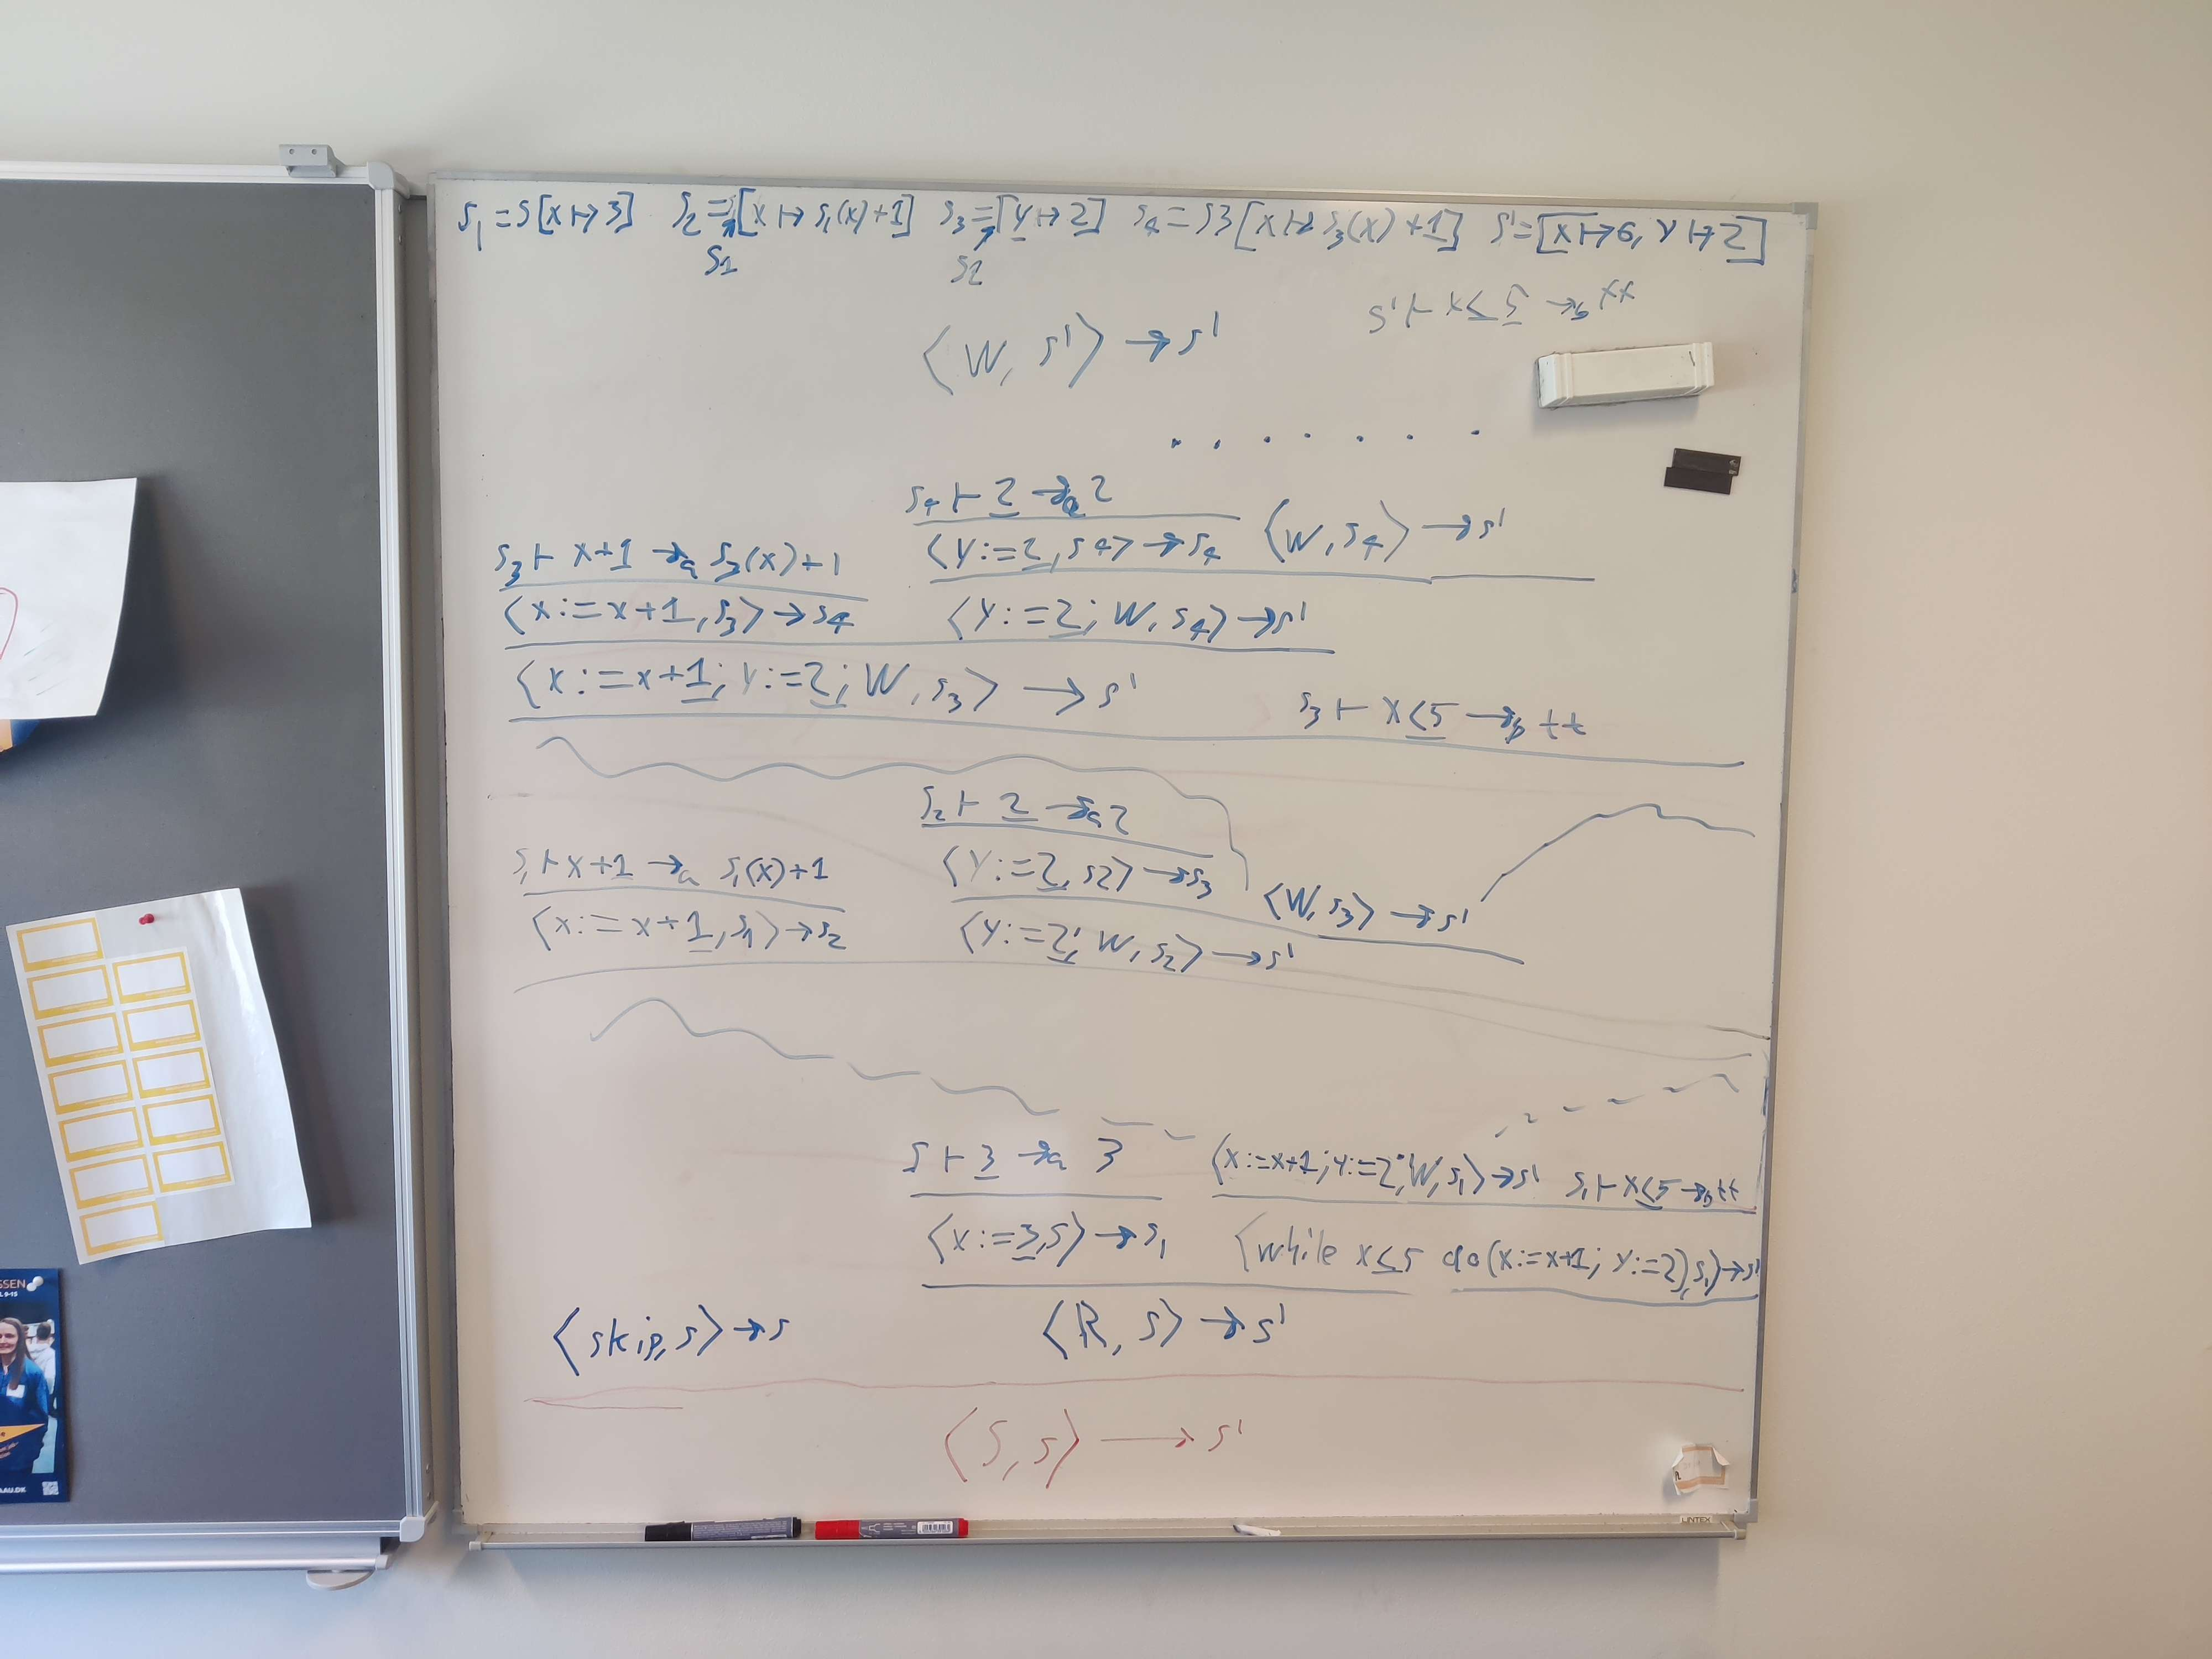 s₁ = s[x ↦ 3] s₂ = [x ↦ s₁(x)+1] s₃ = [y ↦ 2] s₄ = s3[x ↦ s₃(x)+1] s' = [x ↦ 6, y ↦ 2]
s1 s2
s' ⊢ x ≤ 5 →b
⟨W, s'⟩ → s'
. . . . . . .
s₄ ⊢ 2 →a 2
⟨y:=2, s4⟩ → s₄ ⟨W, s₄⟩ → s'
s₃ ⊢ x+1 →a s₃(x)+1
⟨x:=x+1, s₃⟩ → s₄ ⟨y:=2; W, s₄⟩ → s'
⟨x:=x+1; y:=2; W, s₃⟩ → s' s₃ ⊢ x ≤ 5 →b tt
s₂ ⊢ 2 →a 2
s₁ ⊢ x+1 →a s₁(x)+1 ⟨y:=2, s2⟩ → s₃ ⟨W, s₃⟩ → s'
⟨x:=x+1, s₁⟩ → s₂ ⟨y:=2; W, s₂⟩ → s'
s ⊢ 3 →a 3 ⟨x:=x+1; y:=2; W, s₁⟩ → s' s₁ ⊢ x ≤ 5 →b tt
⟨x:=3, s⟩ → s₁ ⟨while x ≤ 5 do (x:=x+1; y:=2), s₁⟩ → s'
⟨skip, s⟩ → s ⟨R, s⟩ → s'
⟨S, s⟩ → s'
SSEN
9-15
AAU.DK
LINTEX